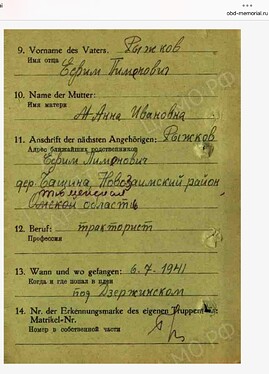 obd-memorial.ru
9. Vorname des Vaters. Рыжков
Имя отца Ефим Пимонович
10. Name der Mutter:
Имя матери
Анна Ивановна
11. Anschrift der nächsten Angehörigen: Рыжков
Адрес ближайших родственников
Ефим Пимонович
дер Новозаимский район
Омской области
12. Beruf: тракторист
Профессия
13. Wann und wo gefangen: 6.7-1941
Когда и где попал в плен
под Дзержинском
14. Nr. der Erkennungsmarke des eigenen Truppenteils:
Matrikel-Nr.
Номер в собственной части